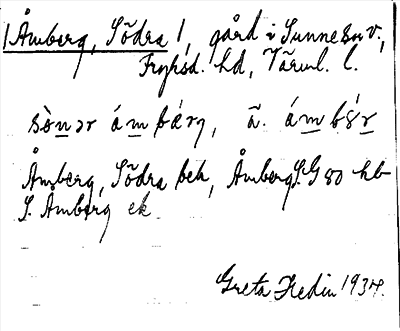 [Åmberg, Södra], gård i Sunne sn v.,
Fryksd. hd, Värml. l.
sö̀nər ámbárj, ä. ámbǽr
Åmberg, Södra bek, Åmberg S. G 80 hb
S. Åmberg ek.
Greta Hedin 1934.